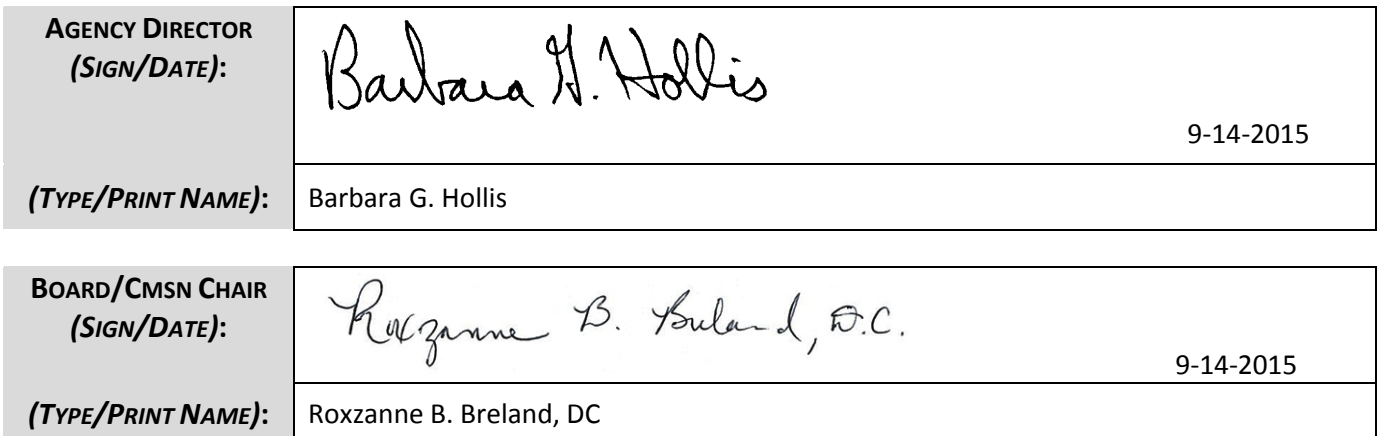 AGENCY DIRECTOR
(SIGN/DATE):
Barbara G. Hollis
9-14-2015
(TYPE/PRINT NAME):
Barbara G. Hollis
BOARD/CMSN CHAIR
(SIGN/DATE):
Roxzanne B. Breland, D.C.
9-14-2015
(TYPE/PRINT NAME):
Roxzanne B. Breland, DC